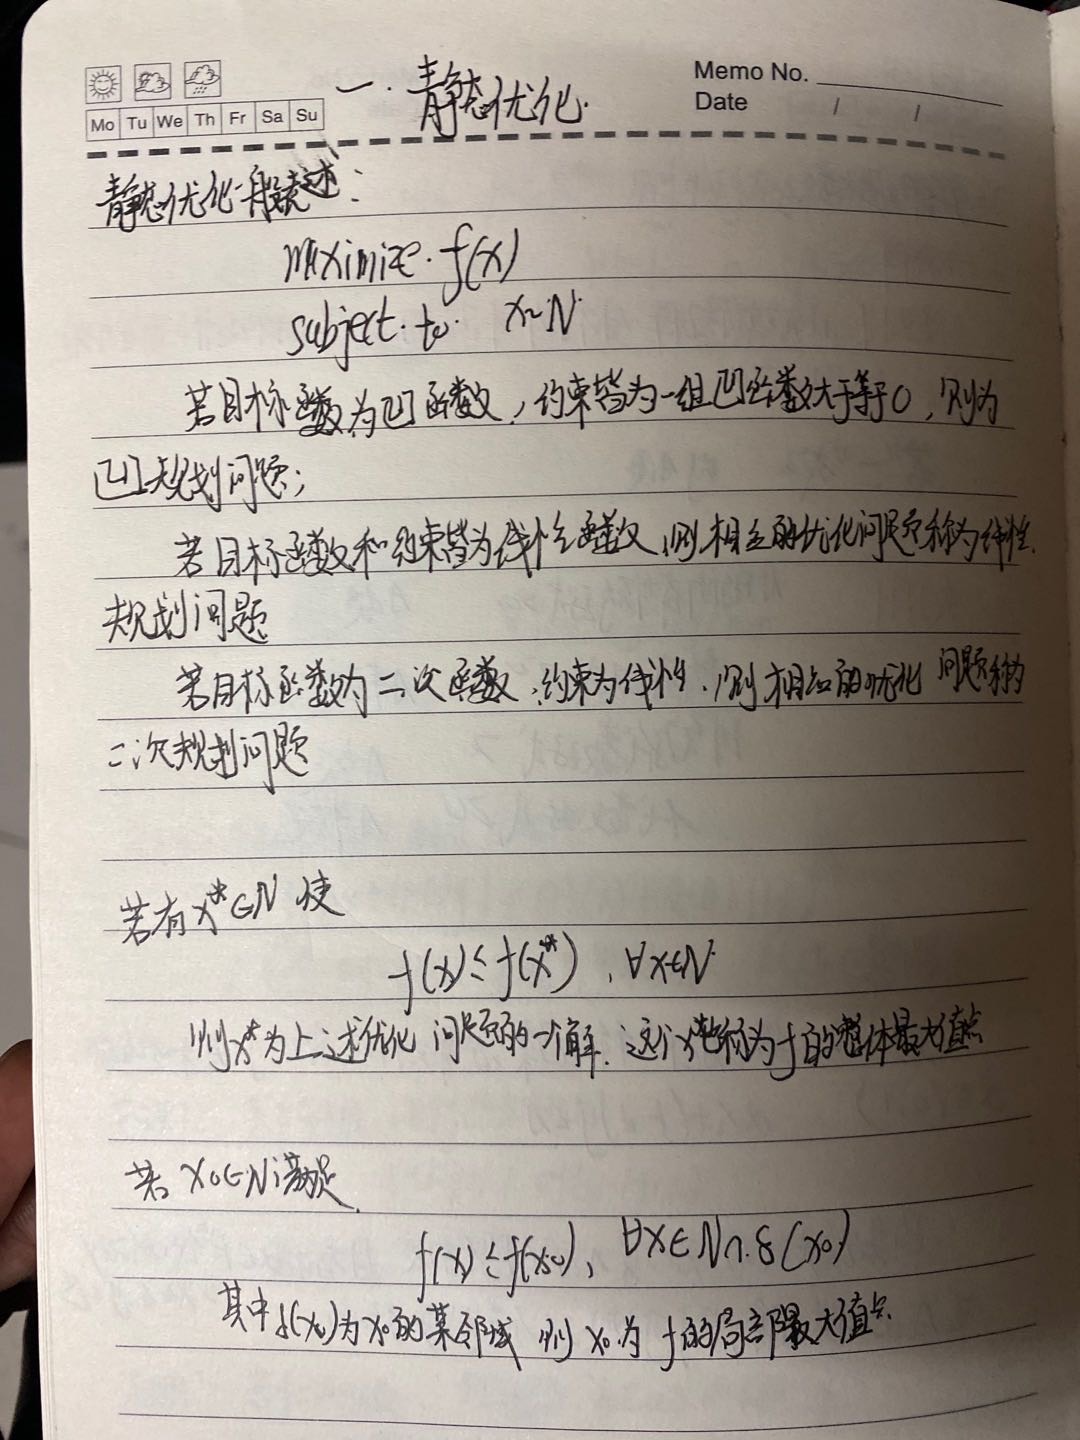 一. 静态优化.
Memo No.
Date / /
Mo Tu We Th Fr Sa Su
静态优化一般表述:
maximize. f(x)
subject. to. x∈N
若目标函数为凹函数,约束皆为一组凹函数大于等于0,则为
凹规划问题;
若目标函数和约束皆为线性函数,则相应的优化问题称为线性
规划问题
若目标函数为二次函数,约束为线性,则相应的优化问题称为
二次规划问题
若有x*∈N 使
f(x)≤f(x*), ∀x∈N.
则x*为上述优化问题的一个解.这个x*也称为f的整体最大值点
若x0∈N满足
f(x)≤f(x0), ∀x∈N∩δ(x0)
其中δ(x0)为x0的某邻域 则x0为f的局部最大值点.